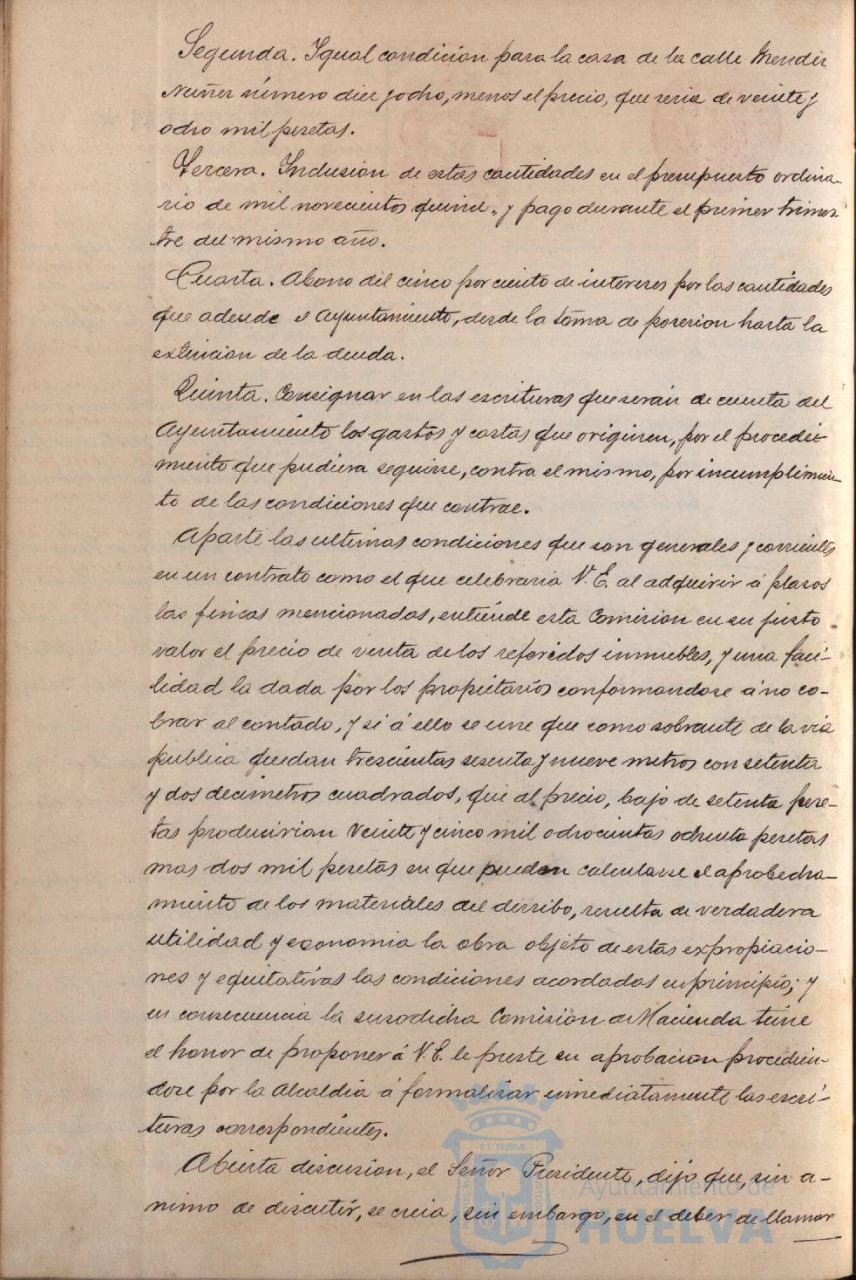 Segunda. Igual condicion para la casa de la calle Mendez
Nuñez número diez y ocho, menos el precio, que seria de veinte y
ocho mil pesetas.
Tercera. Inclusion de estas cantidades en el presupuesto ordina-
rio de mil novecientos quince, y pago durante el primer trimes
tre del mismo año.
Cuarta. Abono del cinco por ciento de intereses por las cantidades
que adeude el Ayuntamiento, desde la toma de posesion hasta la
extincion de la deuda.
Quinta. Consignar en las escrituras que serán de cuenta del
Ayuntamiento los gastos y costas que originen, por el procedi-
miento que pudiera seguirse, contra el mismo, por incumplimien-
to de las condiciones que contrae.
Aparte las ultimas condiciones que son generales y corrientes
en un contrato como el que celebraria V. E. al adquirir á plazos
las fincas mencionadas, entiende esta Comision en su justo
valor el precio de venta de los referidos inmuebles, y una faci-
lidad la dada por los propietarios conformandose á no co-
brar al contado, y si á ello se une que como sobrante de la via
publica quedan trescientos sesenta y nueve metros con setenta
y dos decimetros cuadrados, que al precio, bajo de setenta pese-
tas producirian veinte y cinco mil ochocientas ochenta pesetas
mas dos mil pesetas en que pueden calcularse el aprobecha-
miento de los materiales del derribo, resulta de verdadera
utilidad y economia la obra objeto de estas expropiacio-
nes y equitativas las condiciones acordadas en principio; y
en consecuencia la susodicha Comision de Hacienda tiene
el honor de proponer á V. E. le preste su aprobacion procedien-
dose por la Alcaldia á formalizar inmediatamente las escri-
turas correspondientes.
Abierta discusion, el Señor Presidente, dijo que, sin a-
nimo de discutir, se creia, sin embargo, en el deber de llamar
ET TERRÆ
Ayuntamiento de
HUELVA